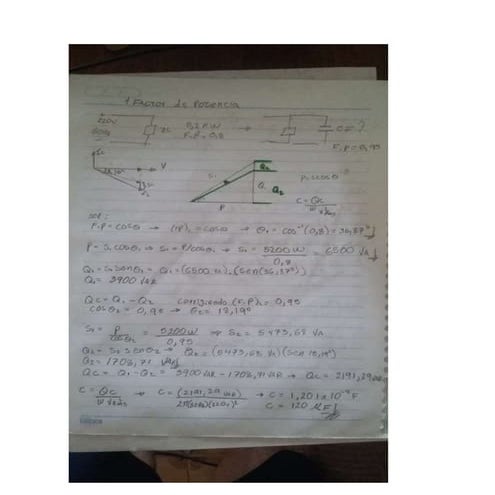 1 Factor de Potencia
220V
60Hz
5,2 KW
F.P = 0,8
C = ?
F.P = 0,95
V
S₁
P
Q₂
Q₁
P = S cos θ
C = Qc
sol:
F.P = cosθ → (FP)₁ = cosθ → θ₁ = cos⁻¹(0,8) = 36,87°
P = S₁ cosθ₁ → S₁ = P/cosθ₁ → S₁ = 5200W / 0,8 = 6500 VA
Q₁ = S₁ senθ₁ = Q₁ = (6500 VA)(sen(36,87°))
Q₁ = 3900 VAR
Qc = Q₁ - Q₂ corrigiendo (F.P)₂ = 0,95
cosθ₂ = 0,95 → θ₂ = 18,19°
S₂ = P / cosθ₂ = 5200W / 0,95 → S₂ = 5473,68 VA
Q₂ = S₂ senθ₂ → Q₂ = (5473,68 VA)(sen 18,19°)
Q₂ = 1708,71 VAR
Qc = Q₁ - Q₂ = 3900 VAR - 1708,71 VAR → Qc = 2191,29 VAR
C = Qc → C = (2191,29 VAR) → C = 1,201 x 10⁻⁴ F
C = 120 µF